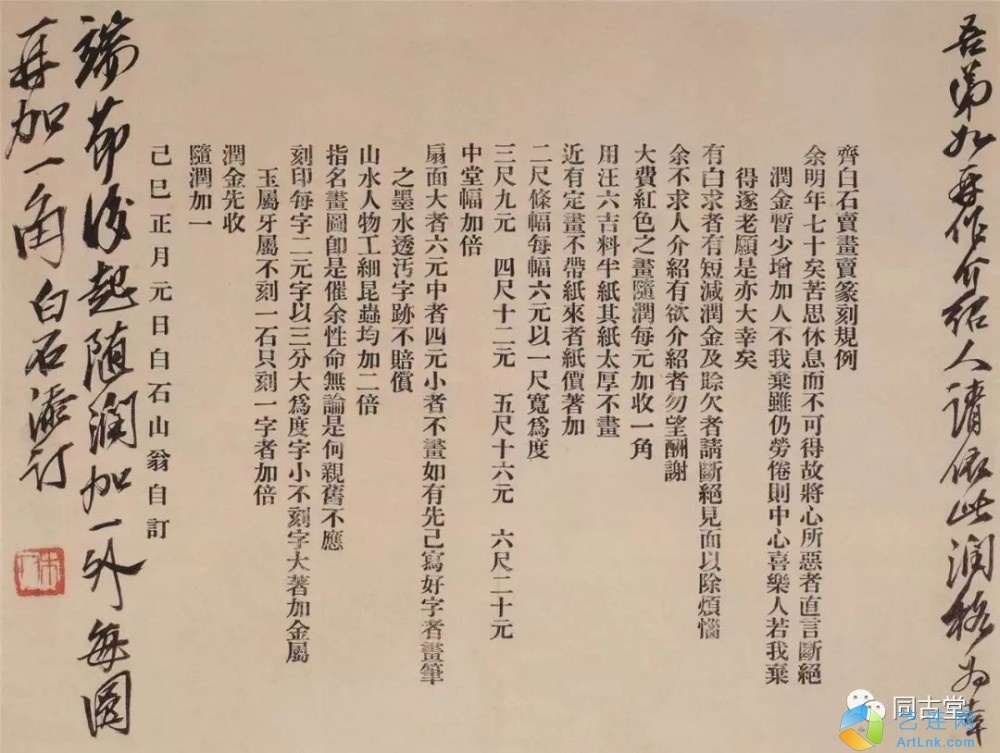 吾弟如再作介紹人請依此潤格为幸
齊白石賣畫賣篆刻規例
余明年七十矣苦思休息而不可得故將心所惡者直言斷絕
潤金暫少增加人不我棄雖仍勞倦則中心喜樂人若我棄
得遂老願是亦大幸矣
有白求者有短減潤金及賒欠者請斷絕見面以除煩惱
余不求人介紹有欲介紹者勿望酬謝
大費紅色之畫隨潤每元加收一角
用汪六吉料半紙其紙太厚不畫
近有定畫不帶紙來者紙價著加
二尺條幅每幅六元以一尺寬爲度
三尺九元 四尺十二元 五尺十六元 六尺二十元
中堂幅加倍
扇面大者六元中者四元小者不畫如有先己寫好字者畫筆
之墨水透汚字跡不賠償
山水人物工細昆蟲均加二倍
指名畫圖卽是催余性命無論是何親舊不應
刻印每字二元字以三分大爲度字小不刻字大著加金屬
玉屬牙屬不刻一石只刻一字者加倍
潤金先收
隨潤加一
己巳正月元日白石山翁自訂
端節後起随润加一外每圆
再加一角白石添訂
同古堂
艺连网
ArtLnk.com